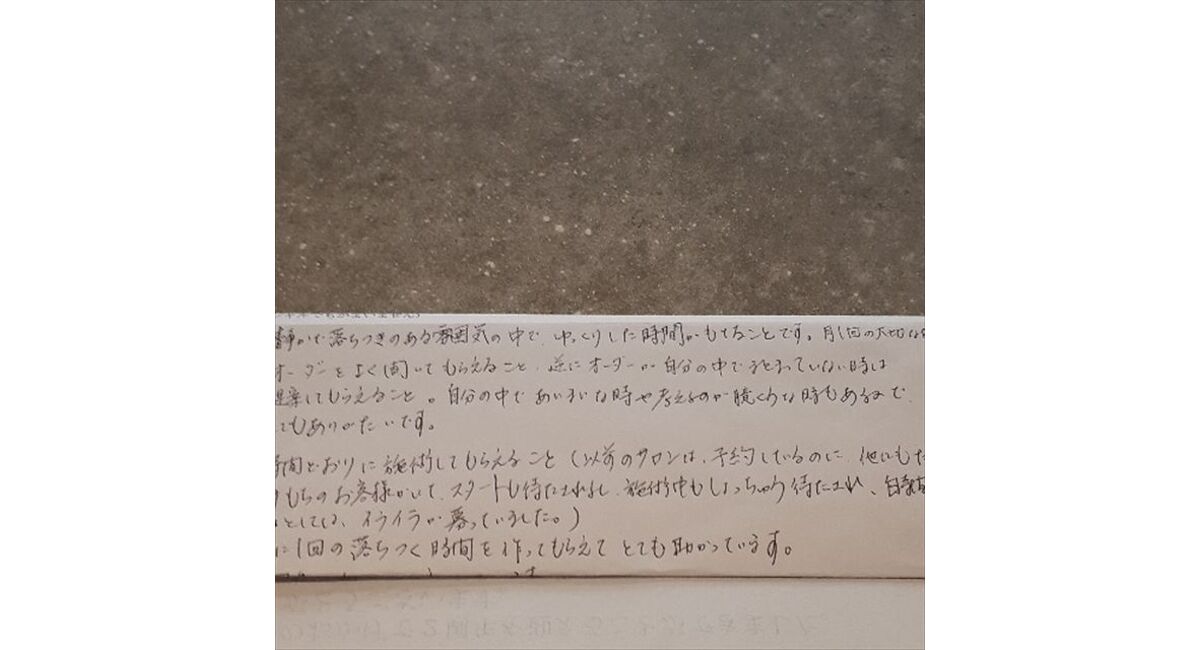 静かで落ちつきのある雰囲気の中で、ゆっくりした時間がもてることです。月1回の大切な
オーダーをよく聞いてもらえること、逆にオーダーが自分の中で決まっていない時は
提案してもらえること。自分の中であいまいな時や考えるのが億くうな時もあるので、
てもありがたいです。
時間どおりに施術してもらえること(以前のサロンは、予約しているのに、他にもた
もちのお客様がいて、スタートも待たされるし、施術中もしょっちゅう待たされ、
としては、イライラが募っていました。)
に1回の落ちつく時間を作ってもらえてとても助かっています。